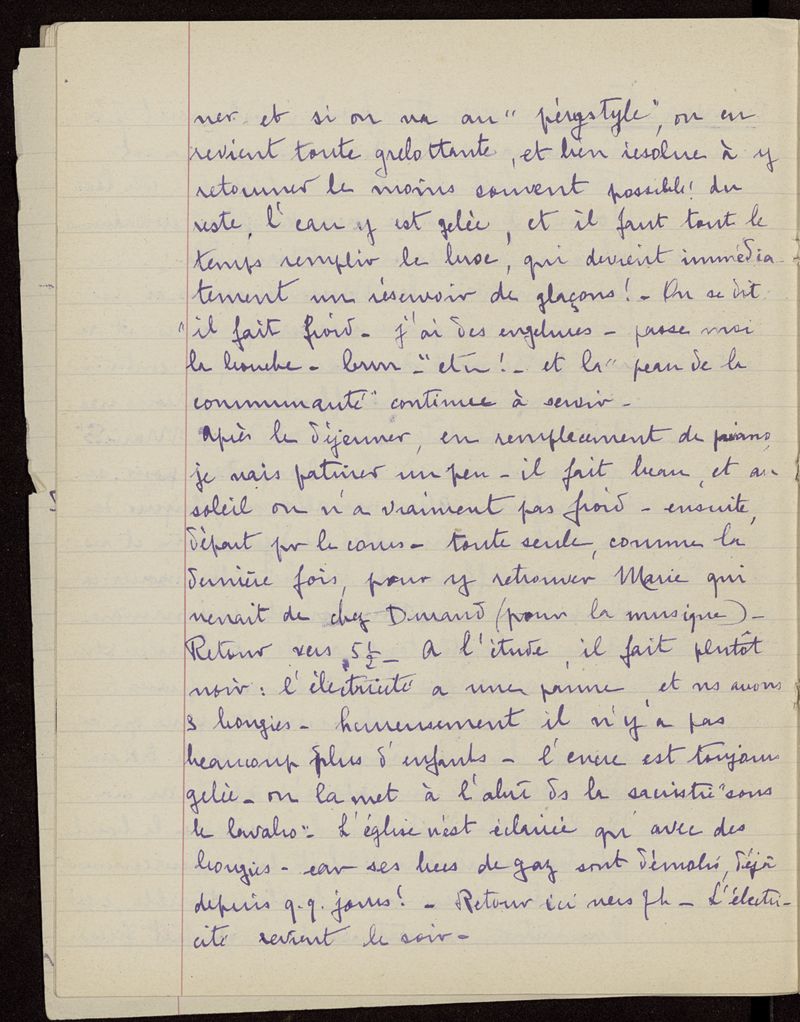 ner et si on va au " péristyle", on en
revient toute grelottante, et bien résolue à y
retourner le moins souvent possible! du
reste, l'eau y est gelée, et il faut tout le
temps remplir le broc, qui devient immédia-
tement un réservoir de glaçons! - On se dit
"il fait froid - j'ai des engelures - passe moi
la bouche - brrr -" etc! - et la "peau de la
communauté" continue à servir -
Après le déjeuner, en remplacement de piano,
je vais patiner un peu - il fait beau, et au
soleil on n'a vraiment pas froid - ensuite,
départ pr le cours - toute seule, comme la
dernière fois, pour y retrouver Marie qui
venait de chez Durand (pour la musique) -
Retour vers 5 1/2 - A l'étude, il fait plutôt
noir : l'électricité a une panne et ns avons
3 bougies - heureusement il n'y a pas
beaucoup plus d'enfants - l'encre est toujours
gelée - on la met à l'abri ds la sacristie "sous
le lavabo": L'église n'est éclairée qu'avec des
bougies - car ses becs de gaz sont démolis, déjà
depuis q.q. jours! - Retour ici vers 7h - L'électri-
cité revient le soir -